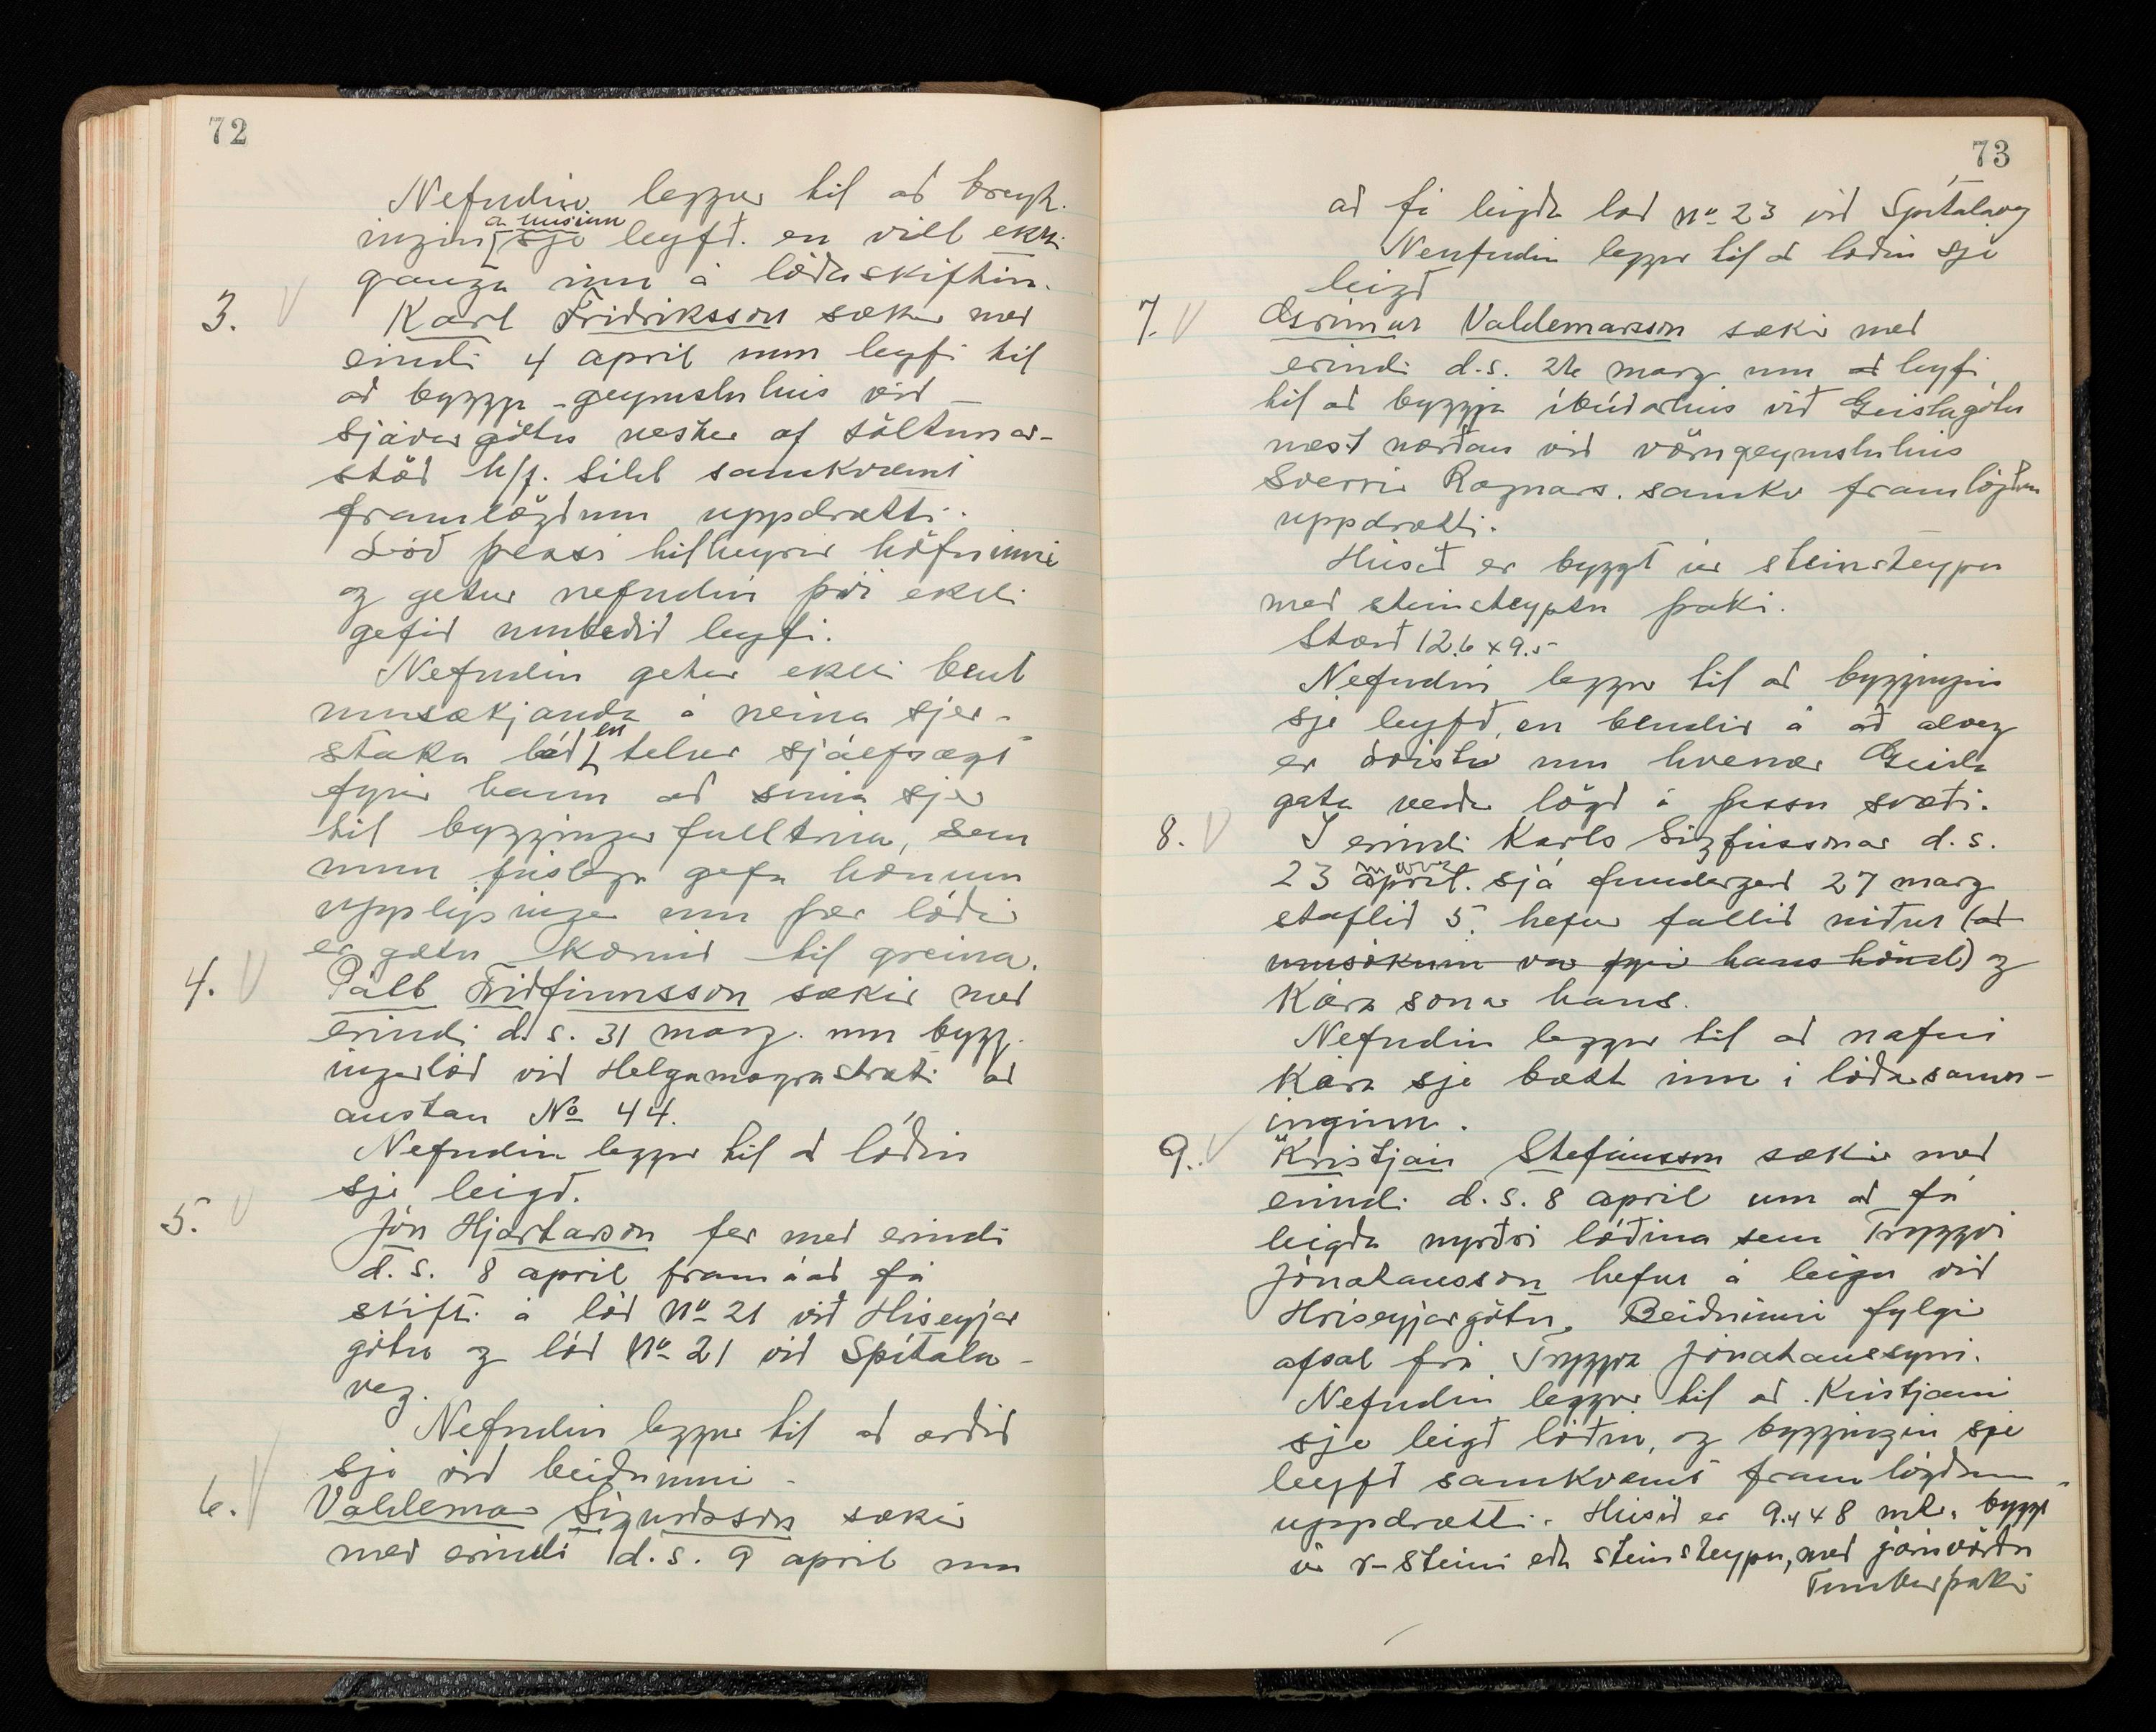 72
Nefndin leggur til að breyt-
ingin á húsinu sje leyfð. en vill ekki
ganga inn á lóðaskiftin.
3. V Karl Friðriksson sækir með
erindi 4 apríl um leyfi til
að byggja geymsluhús við
Sjávargötu vestur af söltunar-
stöð h/f. Síld samkvæmt
framlögðum uppdrætti.
Lóð þessi tilheyrir höfninni
og getur nefndin því ekki
gefið umbeðið leyfi.
Nefndin getur ekki bent
umsækjanda á neina sjer-
staka lóð, en telur sjálfsagt
fyrir hann að snúa sjer
til byggingarfulltrúa, sem
mun fúslega gefa honum
upplýsingar um þær lóðir
er gætu komið til greina.
4. V Páll Friðfinnsson sækir með
erindi d.s. 31 marz. um bygg-
ingarlóð við Helgamagrastræti að
austan No 44.
Nefndin leggur til að lóðin
sje leigð.
5. V Jón Hjartarson fer með erindi
d.s. 8 apríl fram á að fá
skift á lóð No 21 við Hríseyjar
götu og lóð No 21 við Spítala-
veg.
Nefndin leggur til að orðið
sje við beiðninni.
6. V Valdemar Sigurðsson sækir
með erindi d.s. 9 apríl um
73
að fá leigða lóð No 23 við Spítalaveg
Nenfndin leggur til að lóðin sje
leigð
7. V Ásrímur Valdemarsson sækir með
erindi d.s. 26 marz um að leyfi
til að byggja íbúðarhús við Geislagötu
næst norðan við vörugeymsluhús
Sverris Ragnars. samkv framlögðum
uppdrætti.
Húsið er byggt úr steinsteypu
með steinsteyptu þaki.
Stærð 12.6 x 9.5
Nefndin leggur til að byggingin
sje leyfð, en bendir á að alveg
er óvist um hvenær Geisla
gata verður lögð á þessu svæði.
8. V Í erindi Karls Sigfússonar d.s.
23 apríl. marz sjá fundargerð 27 marz
staflið 5. hefur fallið niður (að
umsóknin var fyrir hans hönd) og
Kára sonar hans.
Nefndin leggur til að nafni
Kára sje bætt inn í lóðasamn-
inginn.
9. V Kristján Stefánsson sækir með
erindi d.s. 8 apríl um að fá
leigða nyrðri lóðina sem Tryggvi
Jónatansson hefur á leigu við
Hríseyjargötu. Beiðninni fylgir
afsal frá Tryggva Jónatanssyni.
Nefndin leggur til að Kristjáni
sje leigð lóðin, og byggingin sje
leyfð samkvæmt framlögðum
uppdrætti. Húsið er 9.4 x 8 mtr. byggt
úr r-steini eða steinsteypu, með járnvörðu
Timburþaki